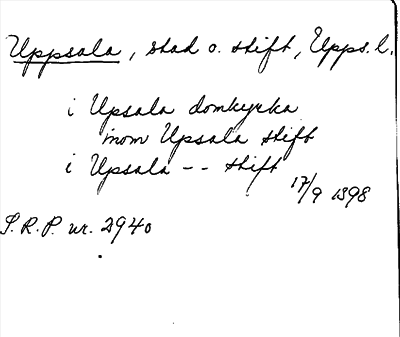 Uppsala, stad o. stift, Upps. l.
i Upsala domkyrka
inom Upsala stift
i Upsala -- stift
17/9 1398
S.R.P. nr. 2940